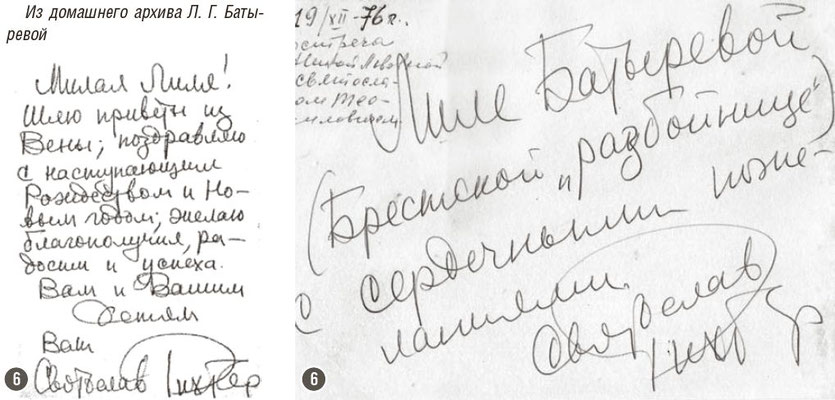 Из домашнего архива Л. Г. Баты-
ревой
Милая Лиля!
Шлю приветы из
Вены; поздравляю
с наступающим
Рождеством и Но-
вым годом; желаю
благополучия, ра-
дости и успеха.
Вам и Вашим
детям
Ваш
Святослав Рихтер
6
19/XII-76 г.
встреча
Ниной Львовной
Святосла-
ом Тео-
иловичем
Лиле Батыревой
(Брестской „разбойнице")
с сердечными поже-
ланиями.
Святослав
Рихтер
6